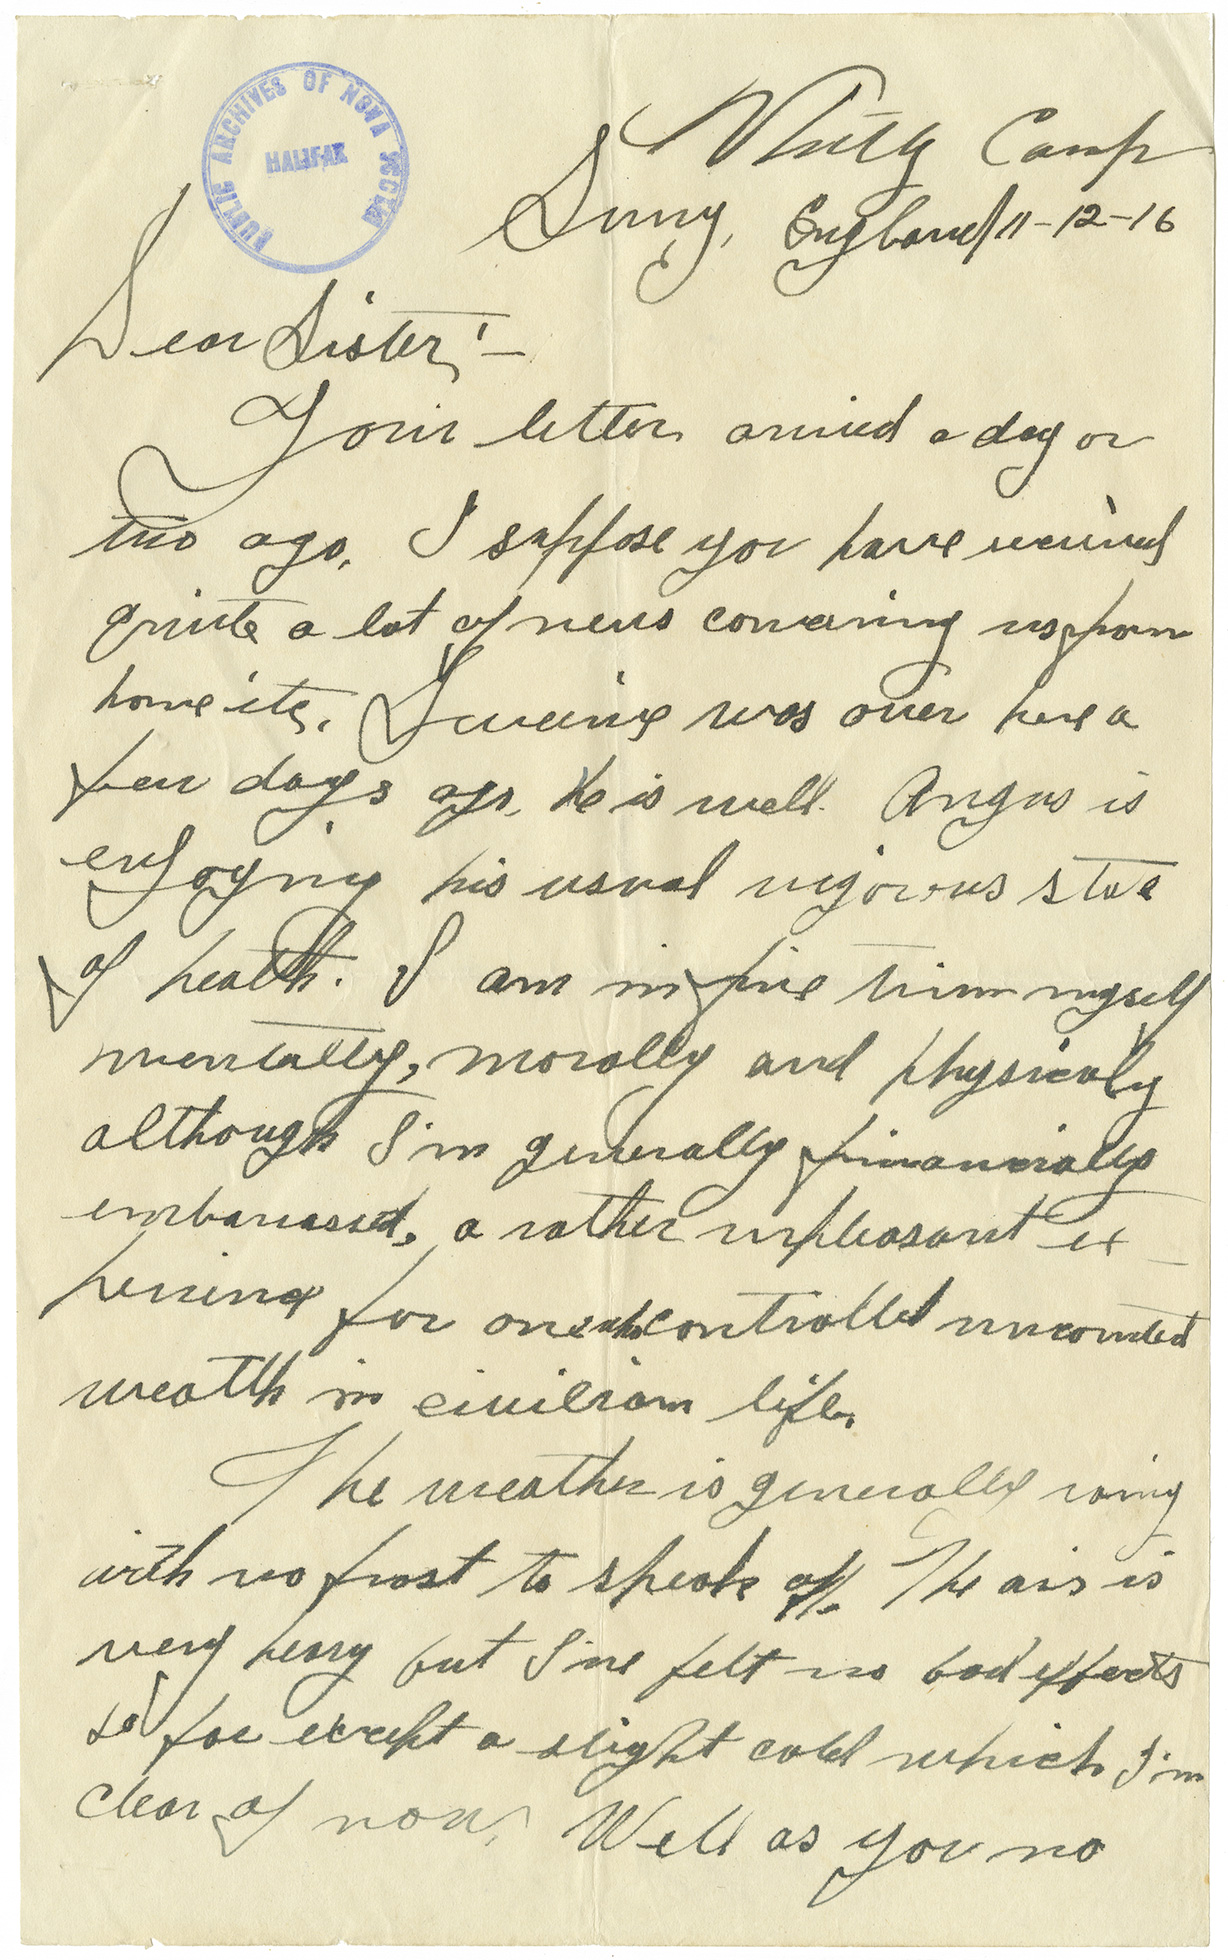 PUBLIC ARCHIVES OF NOVA SCOTIA
HALIFAX
Witly Camp
Surry, England 11-12-16
Dear Sister,-
Your letter arrived a day or
two ago. I suppose you have received
quite a lot of news concerning us from
home etc. was over here a
few days ago. He is well. Angus is
enjoying his usual vigorous state
of health. I am in fine trim myself
mentally, morally and physicaly
although I'm generally financially
embarrassed, a rather unpleasant ex-
perience for one who controlled uncounted
wealth in civilian life.
The weather is generally rainy
with no frost to speak off. The air is
very heavy but I've felt no bad effects
so far except a slight cold which I'm
clear of now. Well as you no